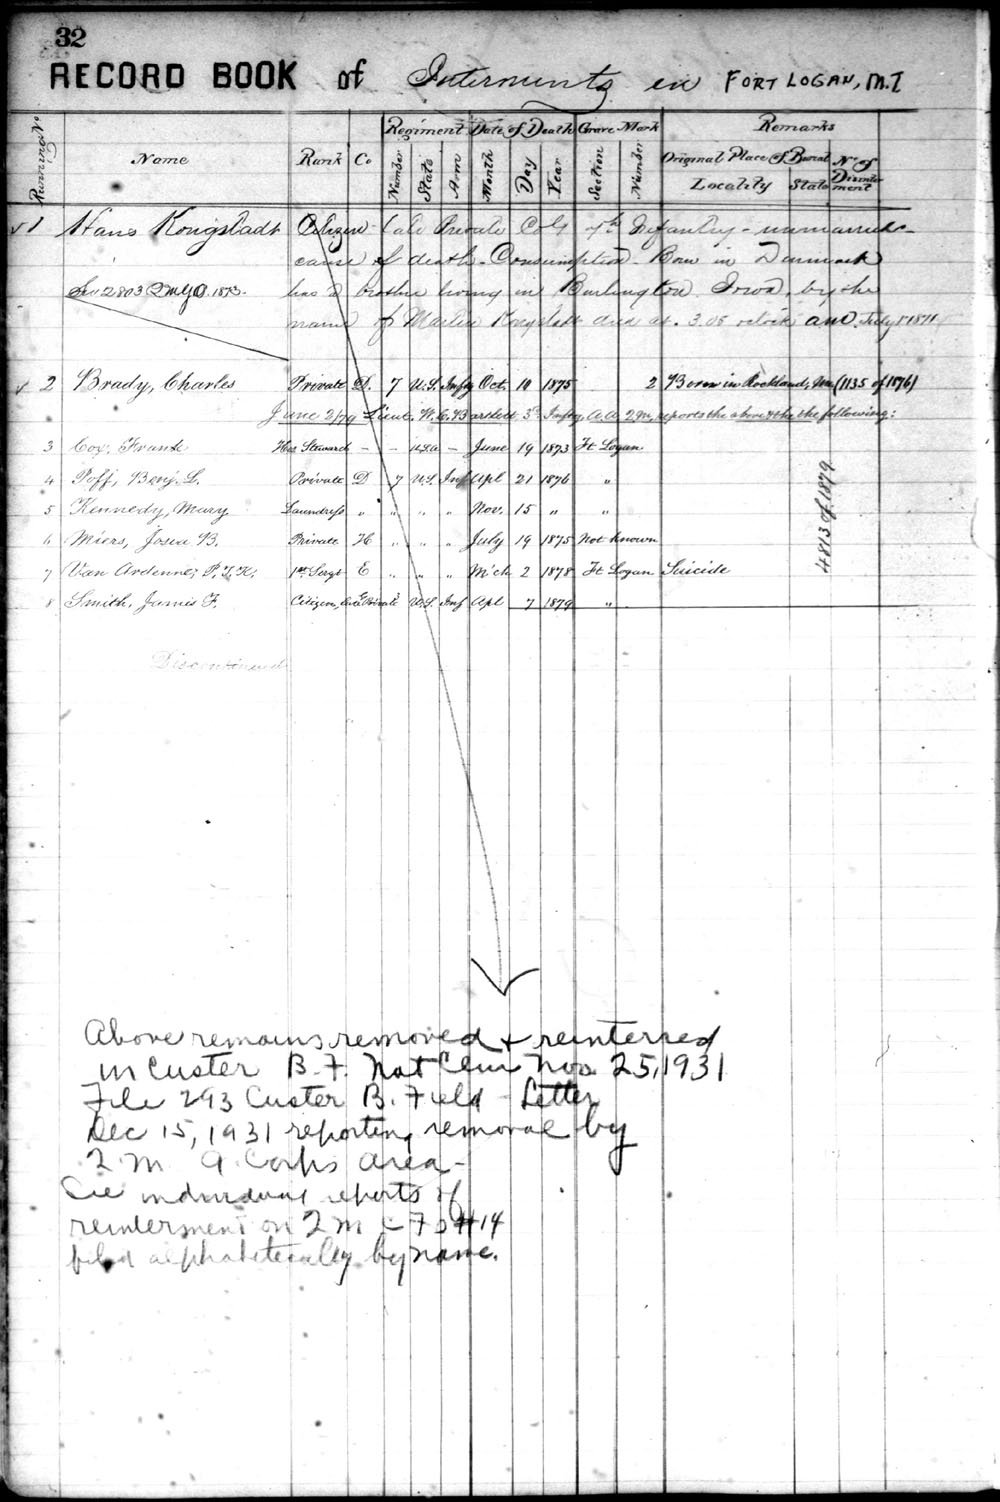 32
RECORD BOOK of Interments in FORT LOGAN, M.T
Running No Name Rank Co Regiment Date of Death Grave Mark Remarks
Number State Arm Month Day Year Section Number Original Place of Burial No of Disinterment
Locality State
1 Hans Kongstadt Citizen late Private Co G 7th Infantry - unmarried -
cause of death - Consumption - Born in Denmark
2803 QMGO. 1873. has a brother living in Burlington Iowa, by the
name of Martin Kongstadt died at 3.05 oclock July 1871
2 Brady, Charles Private D. 7 U.S. Infy Oct. 10 1875 2 Born in Rockland, (1135 of 1876)
June 2/79 Lieut. W. C. Bartlett, 3d Infty, A.A.2m, reports the above & the following:
3 Cox, Frank Hos Steward - - USA - June 19 1873 Ft Logan
4 Poff, Benj. L. Private D 7 U.S. Inf Apl 21 1876 "
5 Kennedy, Mary Laundress " " " " Nov. 15 " "
6 Miers, Josia B. Private H " " " July 19 1875 Not known
7 Van Ardenne, P.T.K. 1st Sergt E " " " M'ch 2 1878 Ft Logan Suicide
8 Smith, James F. Citizen, late Private U.S. Inf Apl 7 1879 "
4813 of 1879
Discontinued
Above remains removed & reinterred
in Custer B. F. Nat Cem Nov 25, 1931
File 293 Custer B. Field - Letter
Dec 15, 1931 reporting removal by
2 M 9 Corps Area -
See individual reports of
reinterment on 2 M C Fo #14
filed alphabetically by name.